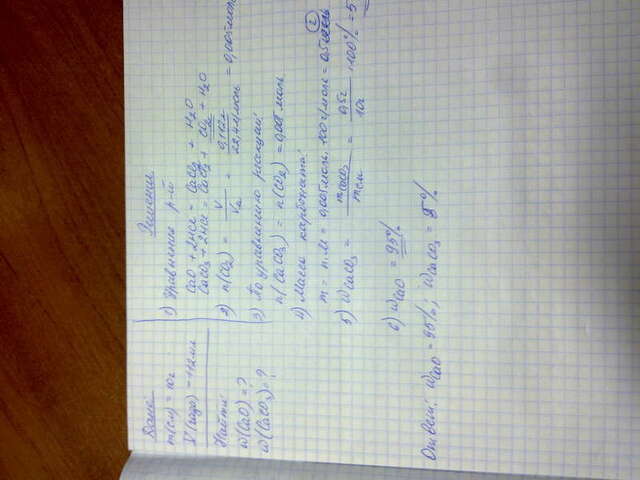 Дано:
m(см) = 10г
V(газа) = 112мл
Найти
w(CaO) = ?
w(CaCO₃) = ?
Решение
1) Уравнения р-й
CaO + 2HCl = CaCl₂ + H₂O
CaCO₃ + 2HCl = CaCl₂ + CO₂ + H₂O
2) n(CO₂) = V/Vm = 0,112л/22,4л/моль = 0,005моль
3) По уравнению реакции:
n(CaCO₃) = n(CO₂) = 0,005 моль
4) Масса карбоната:
m = n·M = 0,005моль·100г/моль = 0,5
5) WCaCO₃ = mCaCO₃/mсм = 0,5г/10г ·100% = 5
6) WCaO = 95%
Ответ: WCaO = 95%; WCaCO₃ = 5%